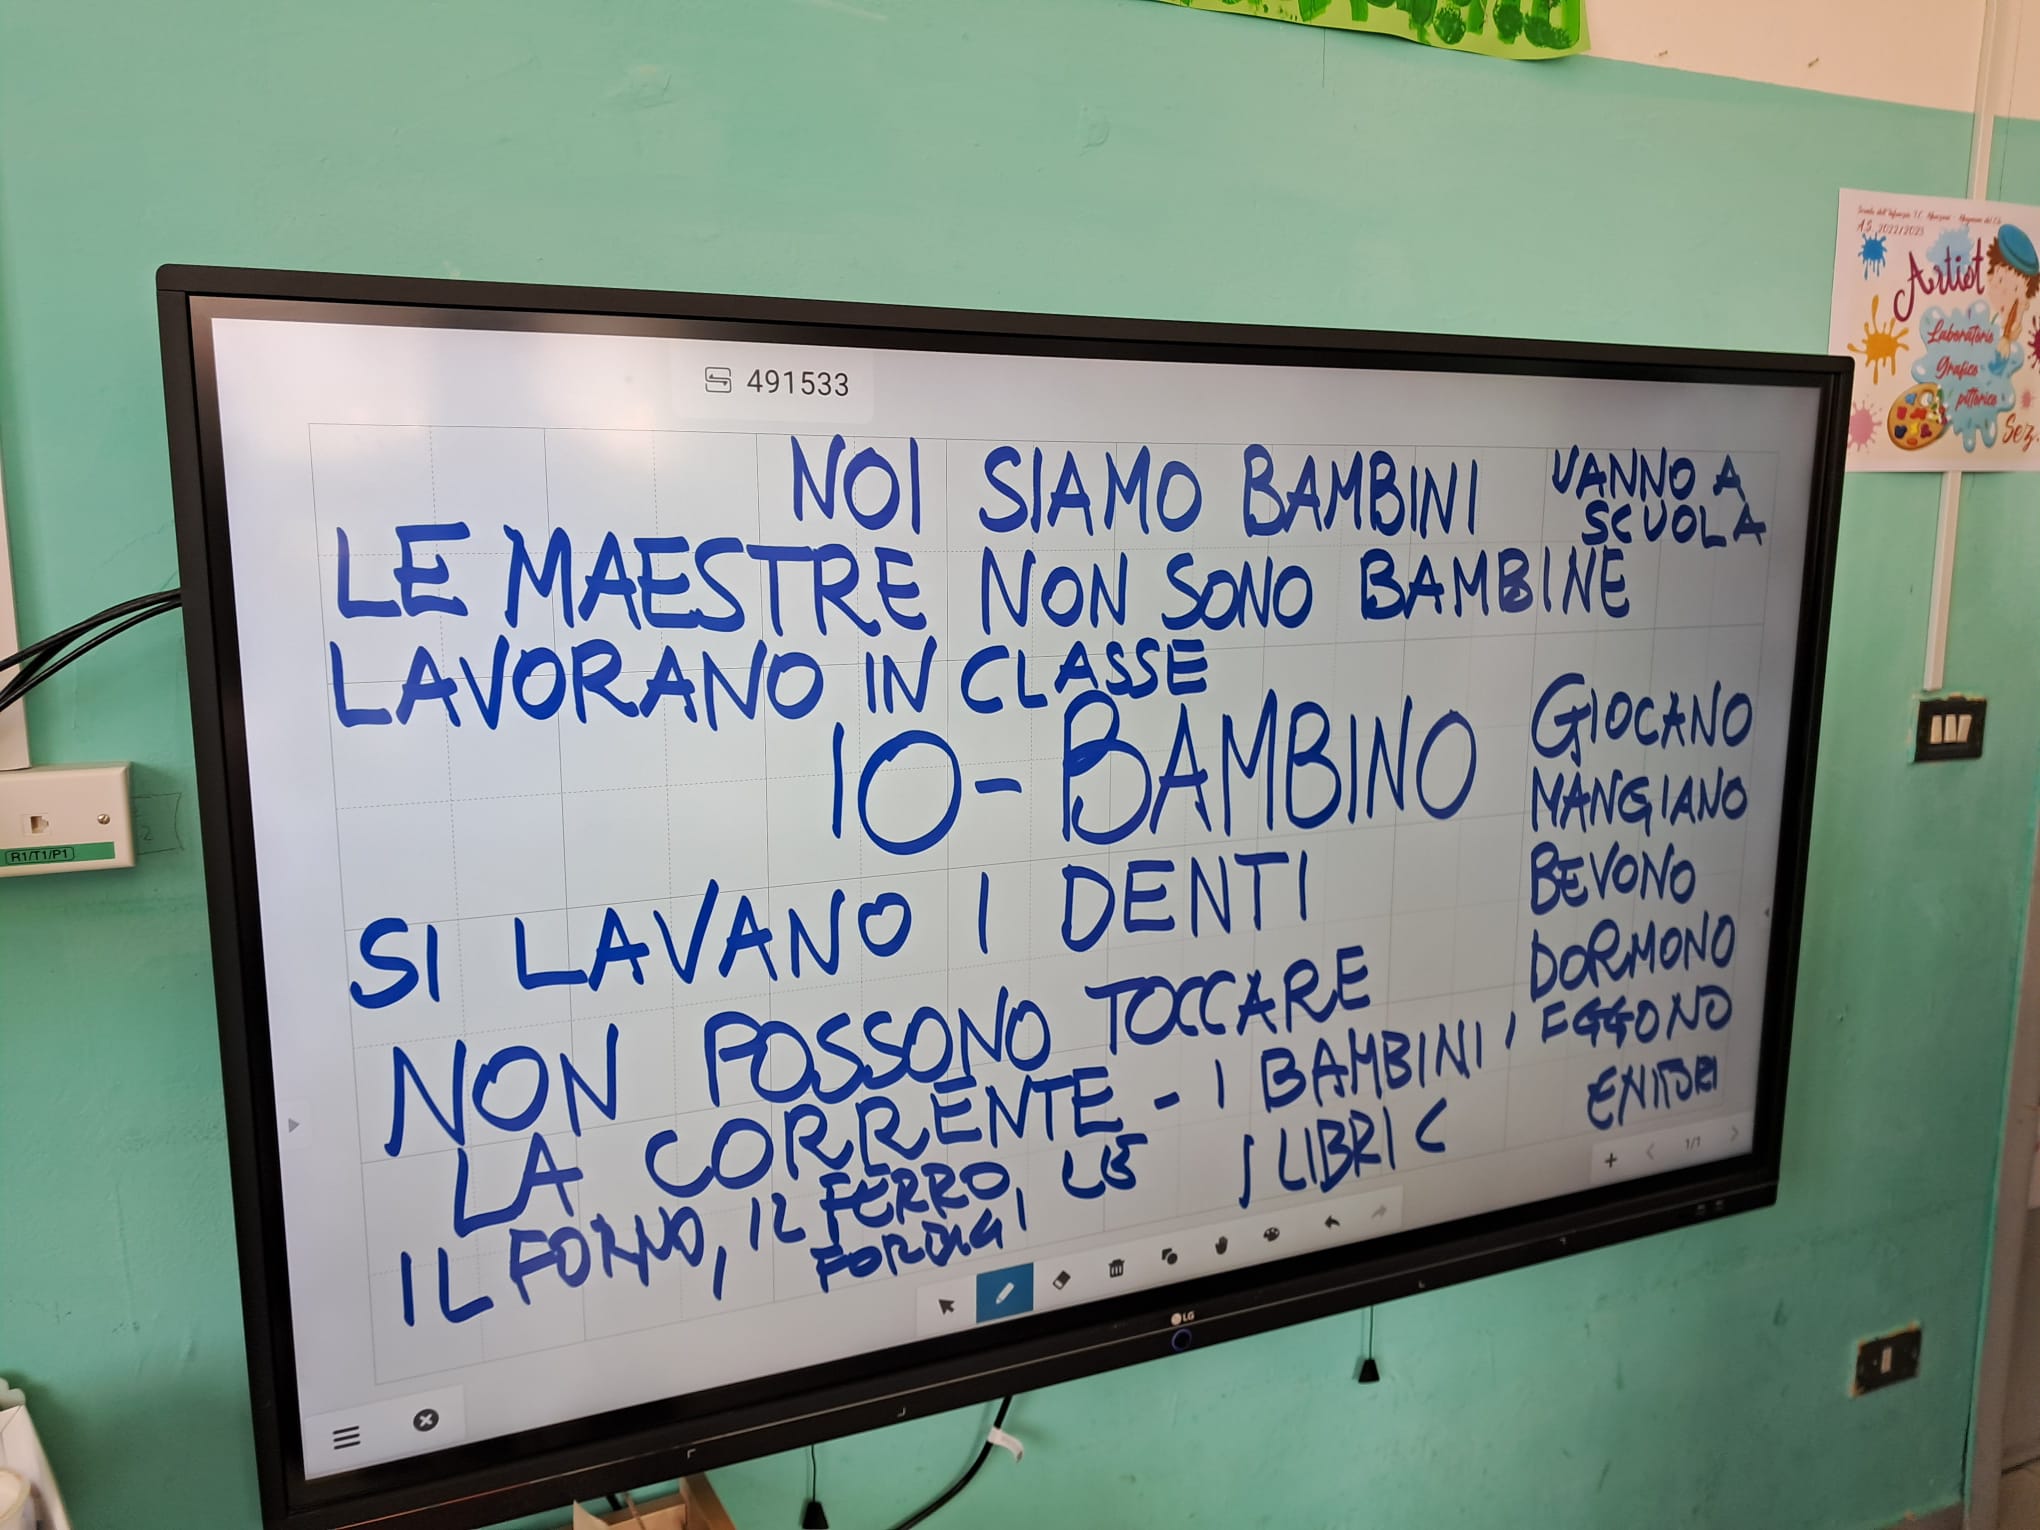 491533
NOI SIAMO BAMBINI
VANNO A
SCUOLA
LE MAESTRE NON SONO BAMBINE
LAVORANO IN CLASSE
IO - BAMBINO
GIOCANO
MANGIANO
BEVONO
DORMONO
EGGONO
SI LAVANO I DENTI
NON POSSONO TOCCARE
LA CORRENTE - I BAMBINI,
IL FORNO, IL FERRO, LE
I LIBRI C
1/1
LG
R1/T1/P1
A.S. 2022/2023
Artist
Laboratorio
Grafico
pittorico
Sez.